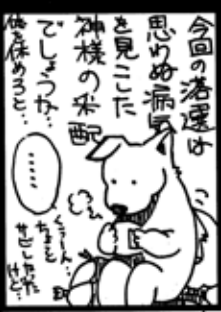 今回の落選は
思わぬ病気
を見こした
神様の采配
でしょうか…
俺を休めろと…
……
くぅーん…
ちょっと
サビしかった
けど…